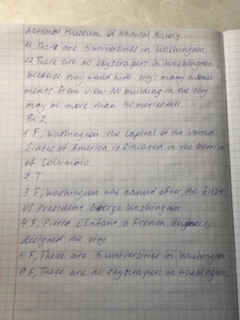 National Museum of Natural History
11 There are 5 universities in Washington.
12 There are no skyscrapers in Washington
because they would hide city's many monu
ments from view. No building in the city
may be more than 40 metres tall.
Ex 2.
1 F, Washington the capital of the United
States of America, is situated in the District
of Columbia
2 T
3 F, Washington was named after the first
US President George Washington
4 F, Pierre L'Enfant, a French engineer,
designed the city.
5 F, There are 5 universities in Washington
6 F, There are no skyscrapers in Washington,